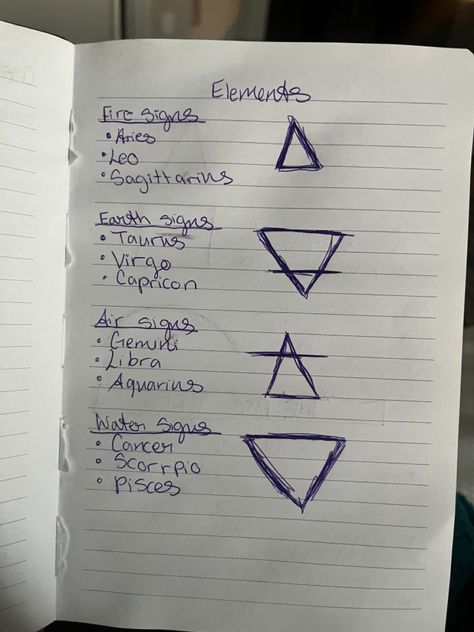 Elements
Fire signs
• Aries
• Leo
• Sagittarius
Earth signs
• Taurus
• Virgo
• Capricon
Air signs
• Gemini
• Libra
• Aquarius
Water signs
• Cancer
• Scorrpio
• Pisces